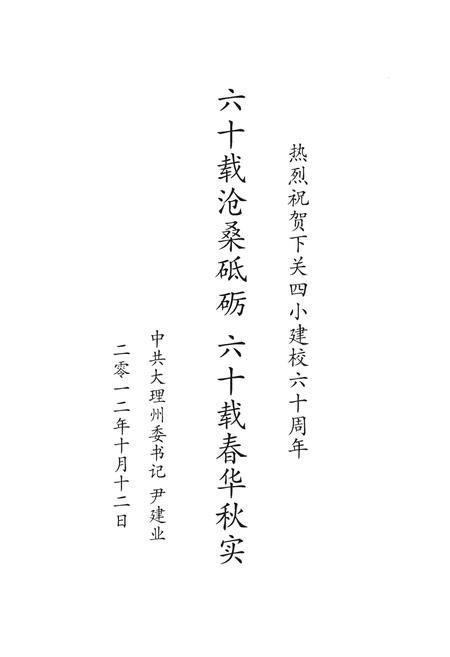 热烈祝贺下关四小建校六十周年
六十载沧桑砥砺 六十载春华秋实
中共大理州委书记 尹建业
二零一二年十月十二日